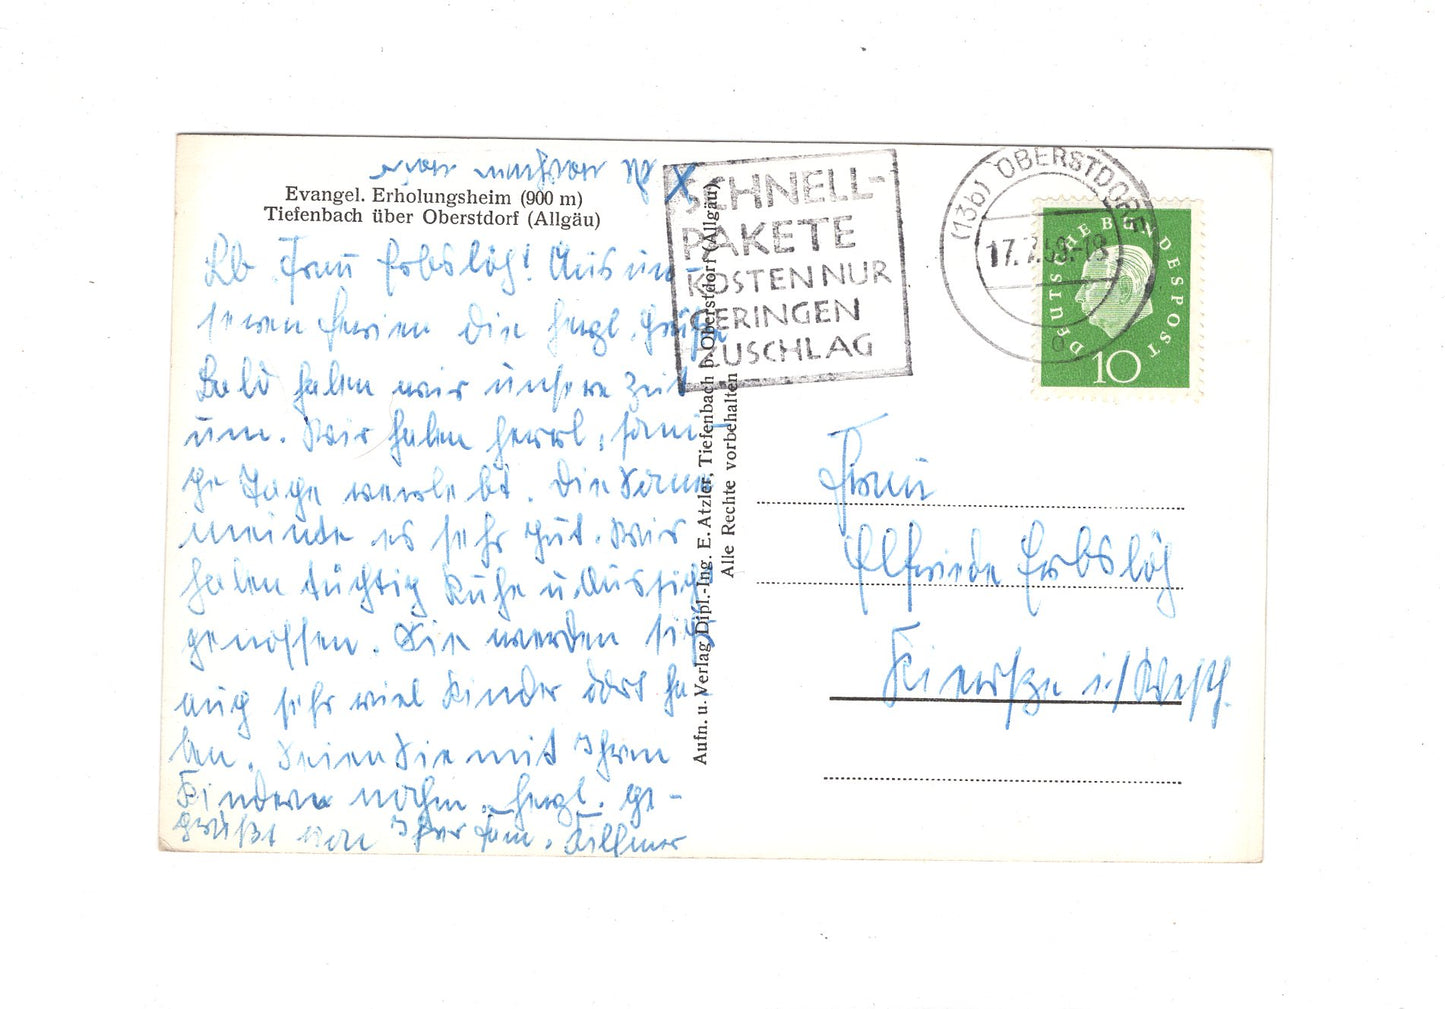 Evangel. Erholungsheim (900 m)
Tiefenbach über Oberstdorf (Allgäu)
Lb. Frau Erbslöh! Aus un-
seren Ferien die herzl. Grüße
Bald haben wir unsere Zeit
um. Wir haben herrl., sonni-
ge Tage verlebt. Die Sonne
meinte es sehr gut. Wir
haben tüchtig Ruhe u. Aussicht
genossen. Sie werden sich
auch sehr viel Kinder dort ha-
ben. Seien Sie mit Ihren
Kindern nochm. herzl. ge-
grüßt von Ihrer Fam.
X
Aufn. u. Verlag Dipl.-Ing. E. Atzler, Tiefenbach b. Oberstdorf (Allgäu)
Alle Rechte vorbehalten
SCHNELL-
PAKETE
KOSTEN NUR
GERINGEN
ZUSCHLAG
(13b) OBERSTDORF
17.7.59.-18
o
DEUTSCHE BUNDESPOST
10
Frau
Elfriede Erbslöh
Kierspe i/Westf.